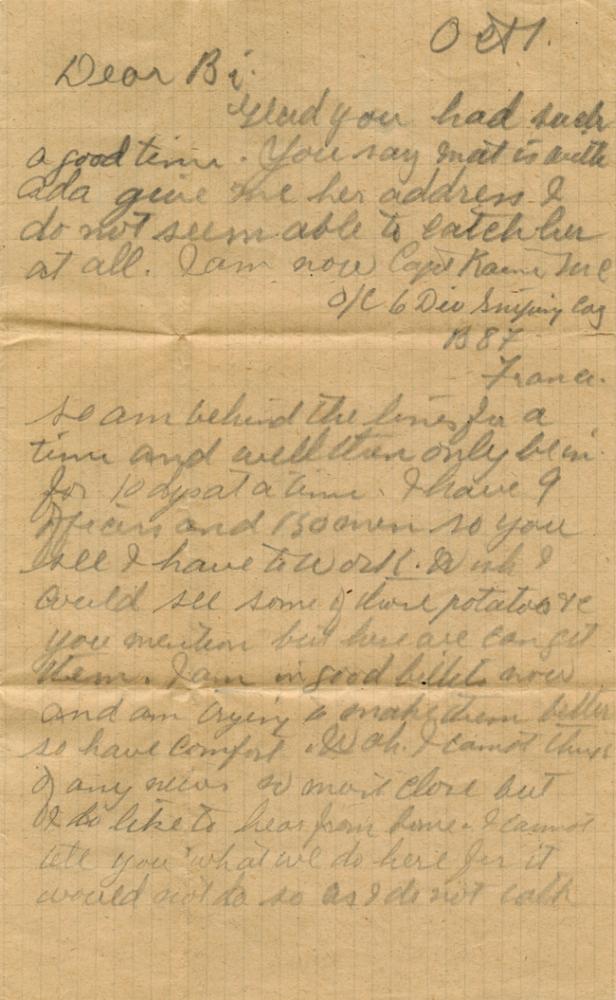 Oct 1.
Dear Bi.
Glad you had such
a good time. You say mat is with
ada give me her address I
do not seem able to catch her
at all. I am now Capt
O/C 6 Div Sniping Coy
B 87
France.
so am behind the lines for a
time and will then only be in
for 10 dys at a time. I have 9
officers and 130 men so you
see I have to work. Wish I
could see some of those potatoes &c
you mention but here we can get
them. I am in good billets now
and am trying to make them better
so have comfort. I cannot think
of any news so must close but
I do like to hear from home. I cannot
tell you what we do here for it
would not do so as I do not talk